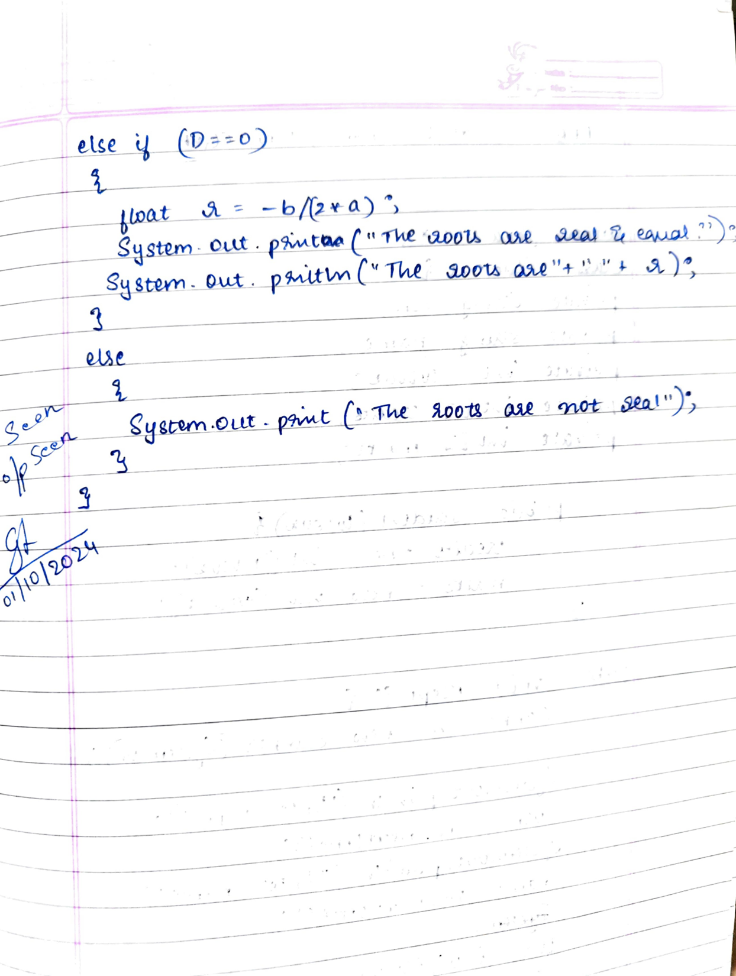 else if (D==0)
{
float r = -b/(2*a);
System.out.println("The roots are real & equal");
System.out.println("The roots are"+" "+ r);
}
else
{
System.out.print("The roots are not real");
}
}
Seen
o/p seen
01/10/2024